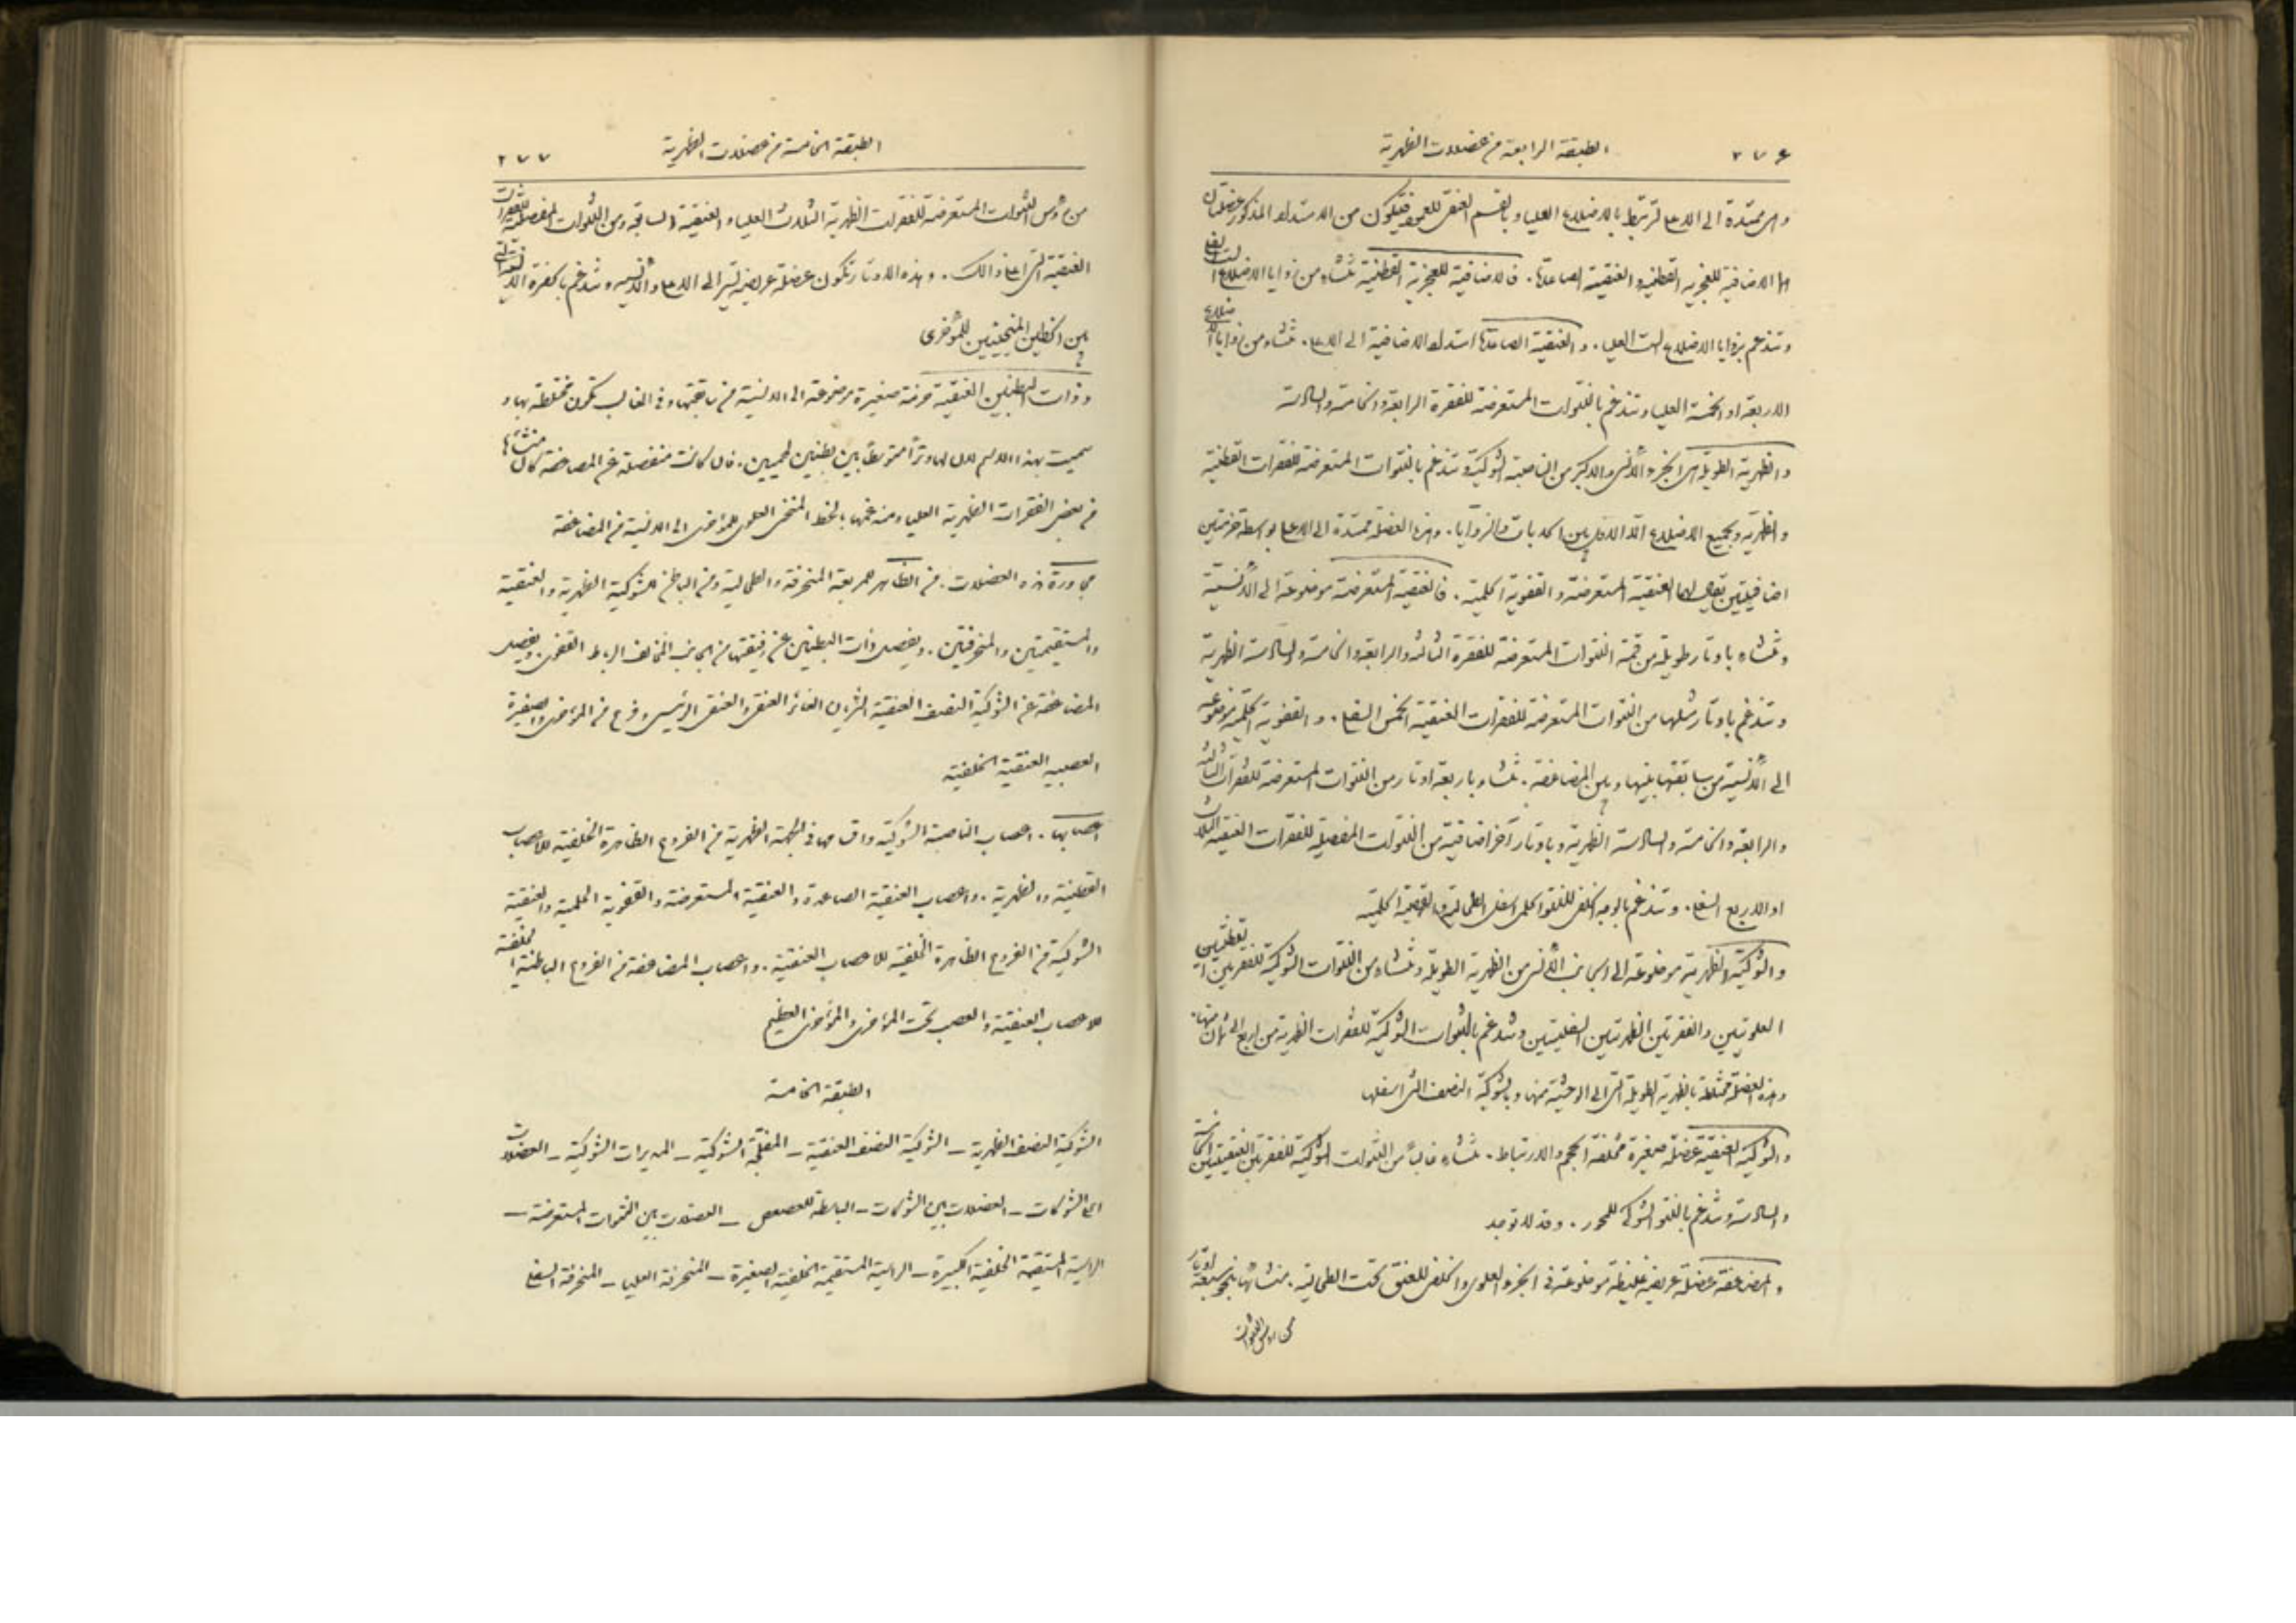 ٢٧۶ الطبقة الرابعة من عضلات الظهرية
وهى ممتدة الى الاعلى لترتبط بالاضلاع العليا وبالقسم العنقى للعمود فيتكون من الاستداد المذكور عضلتان
هما الاضافية للعجزية القطنية والعنقية الصاعدة. فالاضافية للعجزية القطنية تنشاء من زوايا الاضلاع الست السفلى
وتندغم بزوايا الاضلاع الست العليا. والعنقية الصاعدة استداد الاضافية الى الاعلى. تنشاء من زوايا الاضلاع
الاربعة او الخمسة العليا وتندغم بالنتوات المستعرضة للفقرة الرابعة والخامسة والسادسة
والظهرية الطويلة هى الجزء الأنسى والاكبر من الناصبة الشوكية وتندغم بالنتوات المستعرضة للفقرات القطنية
والظهرية وبجميع الاضلاع الّا الاول بين الحدبات والزوايا. وهذه العضلة ممتدة الى الاعلى بواسطة حزمتين
اضافيتين يقال لهما العنقية المستعرضة والقفوية الحلمية. فالعنقية المستعرضة موضوعة الى الأنسيّة
وتنشاء باوتار طويلة من قمة النتوات المستعرضة للفقرة الثالثة والرابعة والخامسة والسادسة الظهرية
وتندغم باوتار مثلها من النتوات المستعرضة للفقرات العنقية الخمس السفلى. والقفوية الحلمية موضوعة
الى الأنسية من سابقتها بينها وبين المضاعفة. تنشاء باربعة اوتار من النتوات المستعرضة للفقرات الثالثة
والرابعة والخامسة والسادسة الظهرية وباوتار آخر اضافية من النتوات المفصلية للفقرات العنقية الثلاث
او الاربع السفلى. وتندغم بالوجه الخلفى للنتو الحلمى اسفل الطحالية والقصية الحلمية
والشوكية الظهرية موضوعة الى الجانب الأنسى من الظهرية الطويلة وتنشاء من النتوات الشوكية للفقرتين القطنيتين
العلويتين والفقرتين الظهريتين السفليتين وتندغم بالنتوات الشوكية للفقرات الظهرية من اربع الى ثمان منها.
وهذه العضلة مختلطة بالظهرية الطويلة التى الى الوحشية منها وبالشوكية النصف التى اسفلها
والشوكية العنقية عضلة صغيرة مختلفة الحجم والارتباط. تنشاء غالباً من النتوات الشوكية للفقرتين العنقيتين الخامسة
والسادسة وتندغم بالنتو الشوكى للمحور. وقد لا توجد
والمضاعفة عضلة عريضة غليظة موضوعة فى الجزء العلوى والخلفى للعنق تحت الطحالية. منشائها بنحو سبعة اوتار
من رؤس النتوات
الطبقة الخامسة من عضلات الظهرية ٢٧٧
من رؤس النتوات المستعرضة للفقرات الظهرية الثلاث العلياء والعنقية السابعة ومن النتوات المفصلية للفقرات
العنقية التى اعلى ذالك. وهذه الاوتار تكون عضلة عريضة تسير الى الاعلى والأنسية وتندغم بالحفرة الانسية التى
بين الخطين المنحنيين للمؤخرى
وذات البطنين العنقية حزمة صغيرة موضوعة الى الانسية من سابقتها وفى الغالب تكون مختلطة بها و
سميت بهذا الاسم لان لها وتراً متوسطاً بين بطنين لحميين. فان كانت منفصلة عن المضاعفة كان منشأها
من بعض الفقرات الظهرية العلياء ومندغمها بالخط المنحنى العلوى للمؤخرى الى الانسية من المضاعفة
مجاورة هذه العضلات. من الظاهر المربعة المنحرفة والطحالية ومن الباطن الشوكية الظهرية والعنقية
والمستقيمتين والمنحرفتين. ويفصل ذات البطنين عن رفيقتها من الجانب المخالف الرباط القفوى ويفصل
المضاعفة عن الشوكية النصف العنقية الشريان الغائر العنقى والعنقى الرئيسى وفرع من المؤخرى والصغيرة
العصبية العنقية الخلفية
اعصابها. اعصاب الناصبة الشوكية واقسامها فى الجهة الظهرية من الفروع الظاهرة الخلفية للاعصاب
القطنية والظهرية. واعصاب العنقية الصاعدة والعنقية المستعرضة والقفوية الحلمية والعنقية
الشوكية من الفروع الظاهرة الخلفية للاعصاب العنقية. واعصاب المضاعفة من الفروع الباطنية الخلفية
للاعصاب العنقية والعصب تحت المؤخرى والمؤخرى العظيم
الطبقة الخامسة
الشوكية النصف الظهرية ـ الشوكية النصف العنقية ـ المفلّجة الشوكية ـ المديرات الشوكية ـ العضلات
اعلى الشوكات ـ العضلات بين الشوكات ـ الباسطة للعصعص ـ العضلات بين النتوات المستعرضة ـ
الراسية المستقيمة الخلفية الكبيرة ـ الراسية المستقيمة الخلفية الصغيرة ـ المنحرفة العليا ـ المنحرفة السفلى